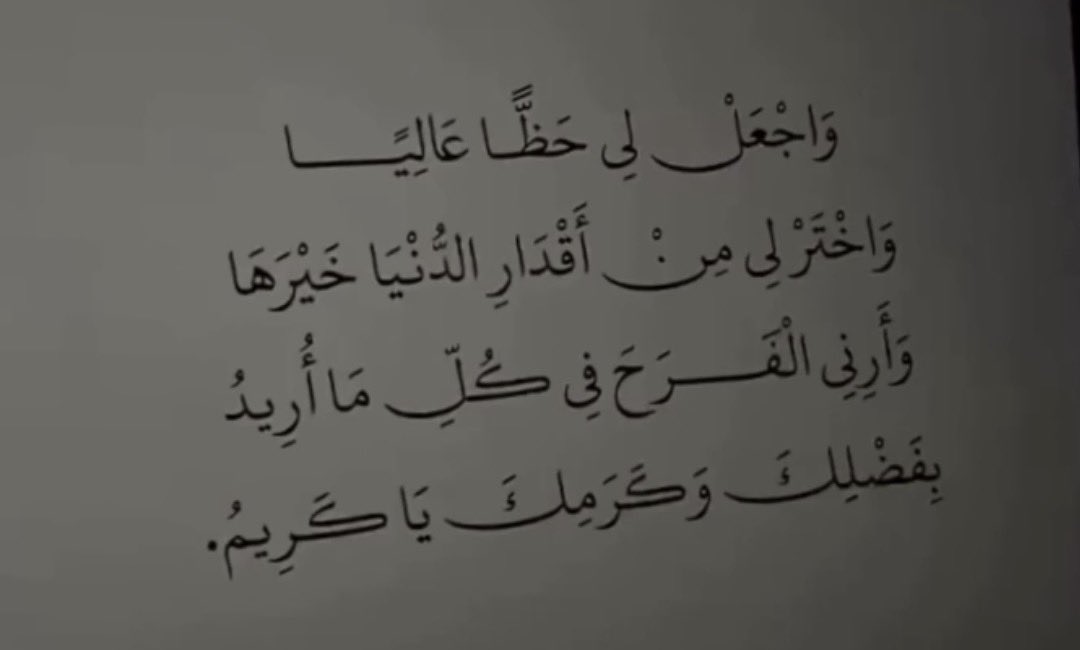 وَاجْعَلْ لِي حَظًّا عَالِيًا
وَاخْتَرْ لِي مِنْ أَقْدَارِ الدُّنْيَا خَيْرَهَا
وَأَرِنِي الْفَرَحَ فِي كُلِّ مَا أُرِيدُ
بِفَضْلِكَ وَكَرَمِكَ يَا كَرِيمُ.